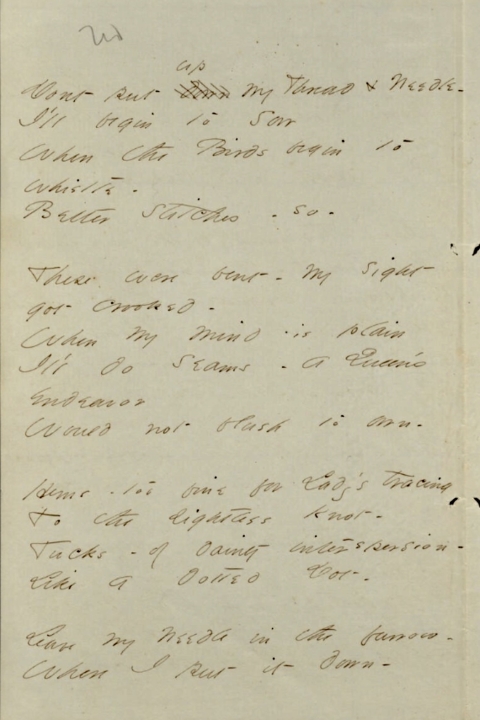 up
Dont put down my Thread & Needle -
I'll begin to Sow
When the Birds begin to
whistle -
Better Stitches - so -
These were bent - my sight
got crooked -
When my mind - is plain
I'll do seams - a Queen's
endeavor
Would not blush to own -
Hems - too fine for Lady's tracing
To the sightless knot -
Tucks - of dainty interspersion -
Like a dotted Dot -
Leave my Needle in the furrow -
Where I put it down -